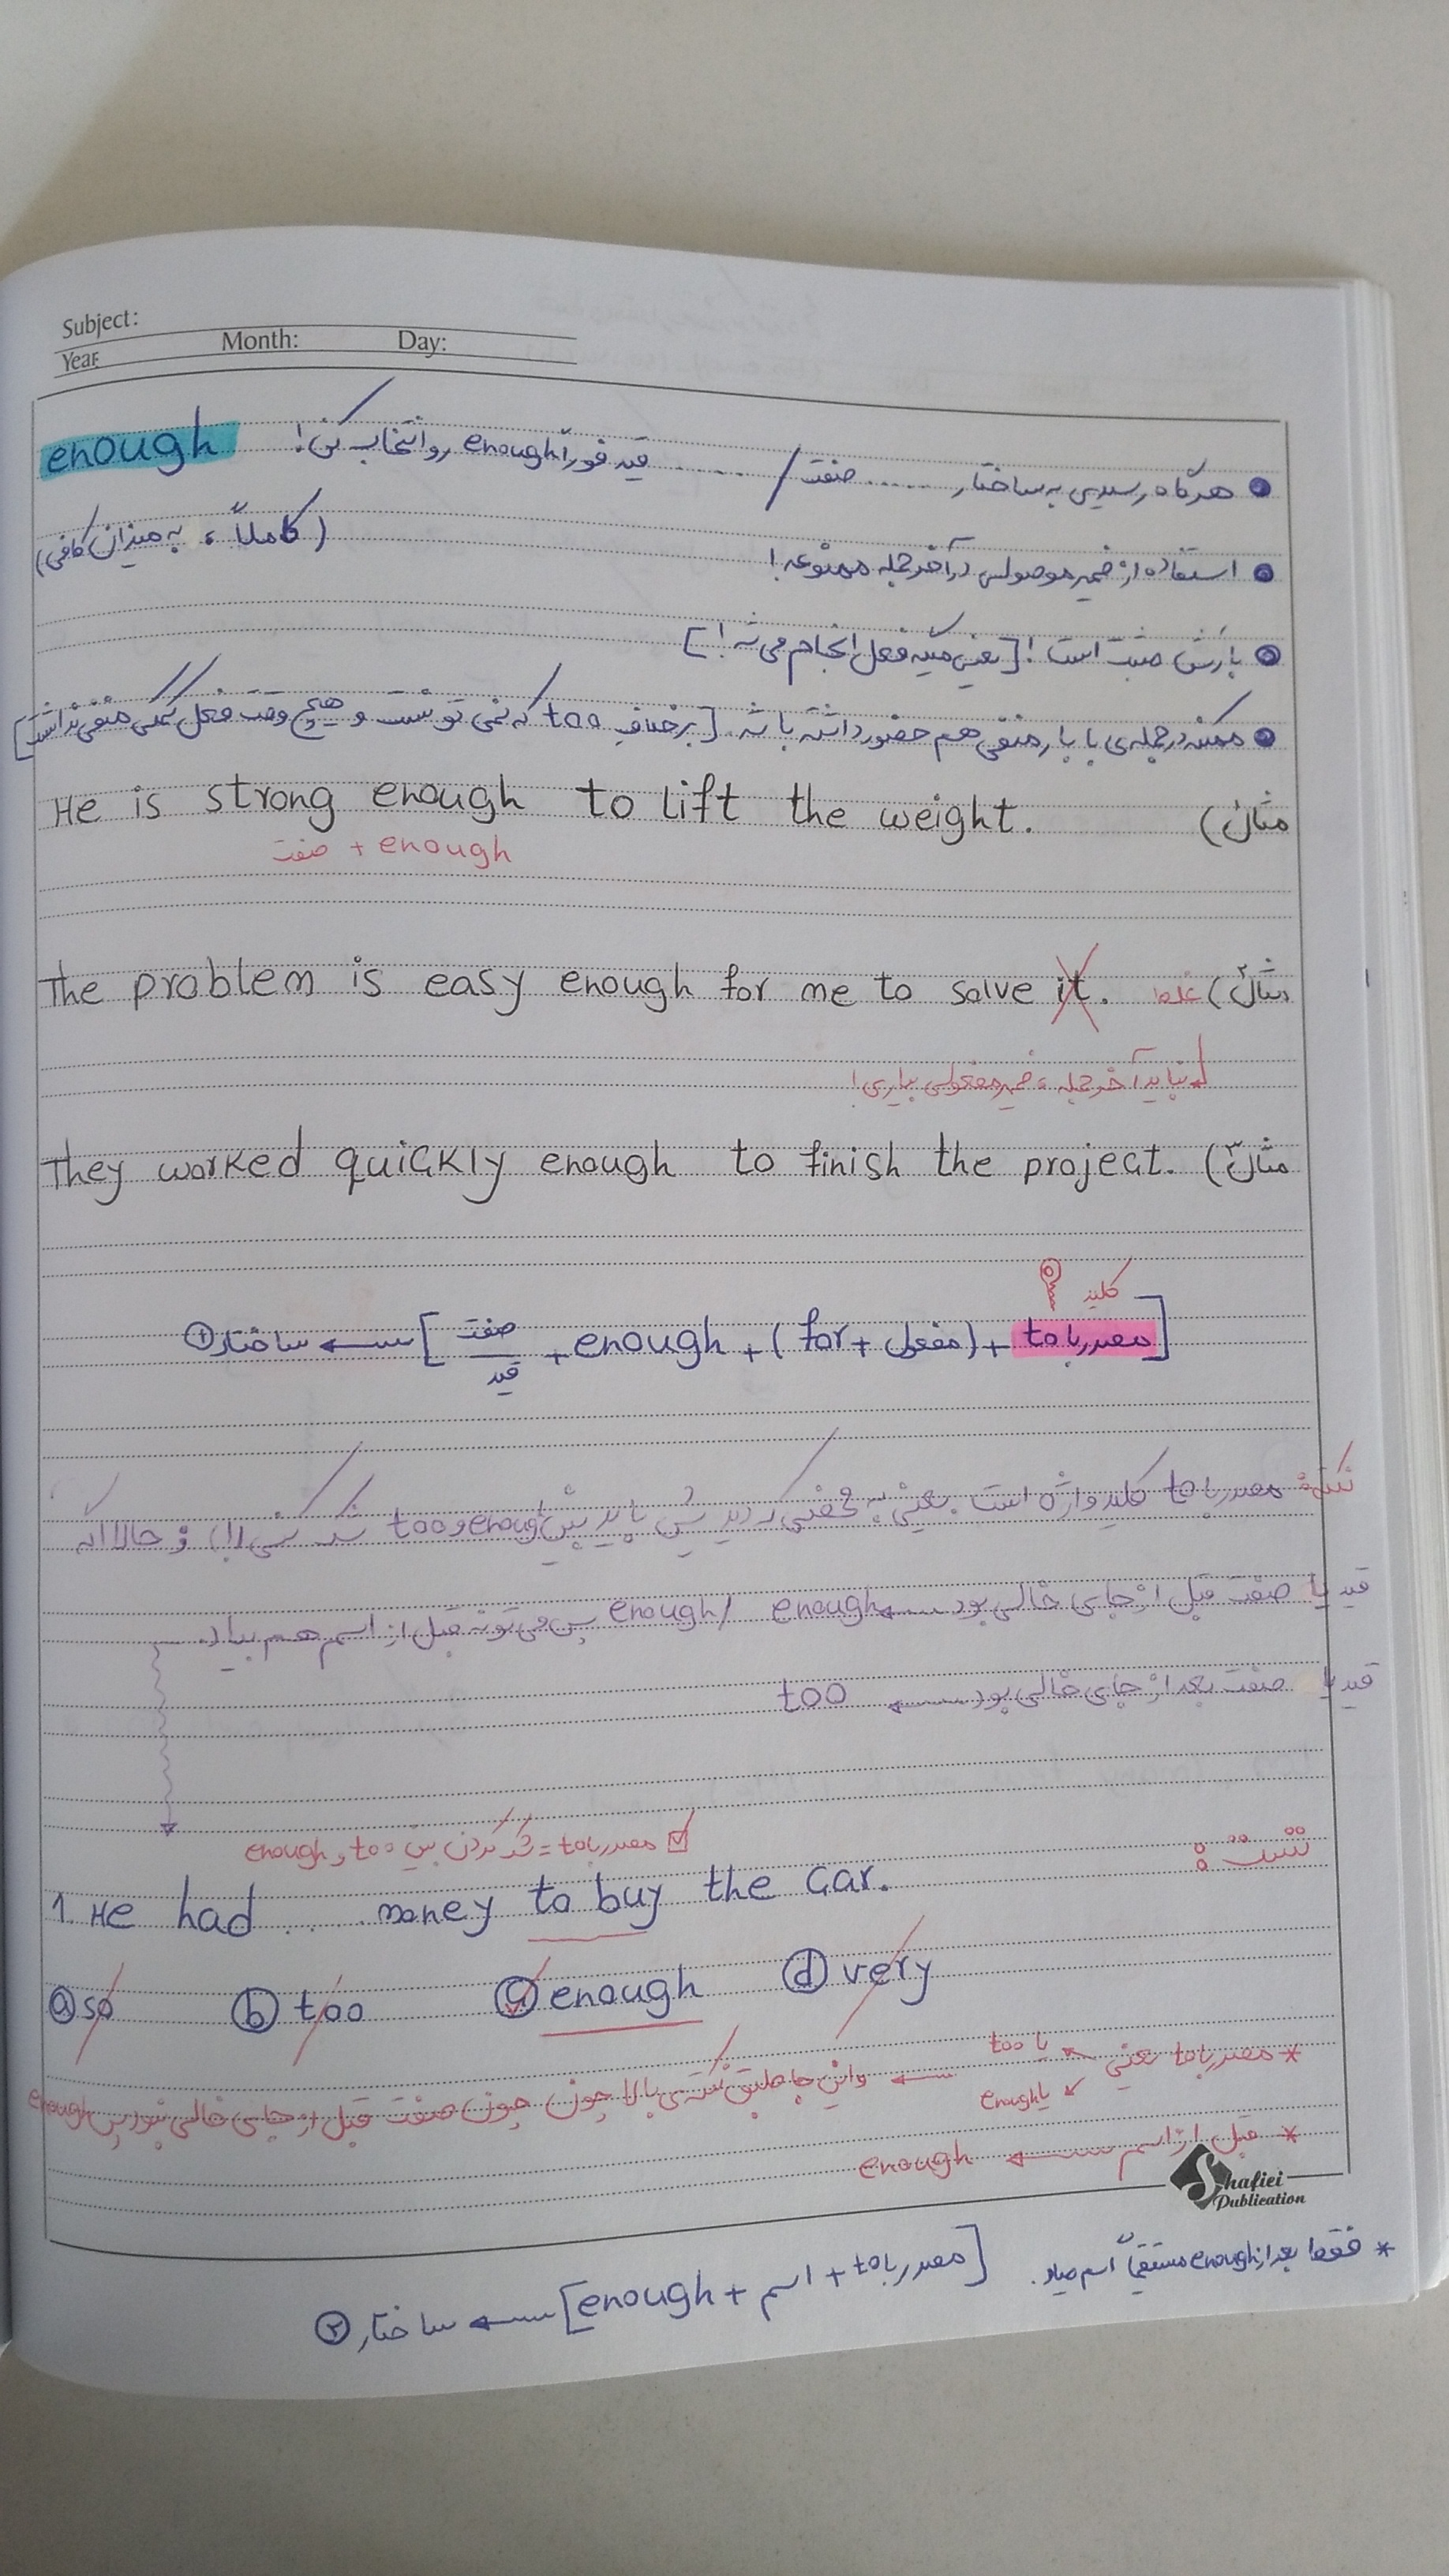 Subject:
Year:
Month:
Day:
enough
هرگاه رسیدی به ساختار ...... صفت / ...... قید فوراً enough رو انتخاب کنی!
(کاملاً ، به میزان کافی)
استفاده از ضمیر موصولی در آخر جمله ممنوعه!
بارش مثبت است! [یعنی میگه فعل انجام می شه!]
ممکنه در جمله ی با بار منفی هم حضور داشته باشه. [برخلاف too که نمی تونست و هیچ وقت فعل کمکی منفی نداشت]
مثال۱) He is strong enough to lift the weight.
صفت + enough
مثال۲) غلط The problem is easy enough for me to solve it.
نباید آخر جمله ، ضمیر مفعولی بیاری!
مثال۳) They worked quickly enough to finish the project.
کلید
ساختار ① ← [صفت / قید + enough + (for + مفعول) + مصدر با to]
نکته: مصدر با to کلید واژه است. یعنی به محضی که دیدیش باید بین enough و too شک کنی(!) و حالا اگه
قید یا صفت قبل از جای خالی بود ← enough / enough پس می تونه قبل از اسم هم بیاد.
قید یا صفت بعد از جای خالی بود ← too
تست:
مصدر با to = شک کردن بین too و enough
1. He had ..... money to buy the car.
ⓐ so ⓑ too ⓒ enough ⓓ very
* مصدر با to یعنی یا too یا enough ← و این جا طبق نکته ی بالا چون چون صفت قبل از جای خالی نبود پس enough
* قبل از اسم ← enough
Shafiei Publication
* فقط بعد از enough مستقیماً اسم میاد.
ساختار ② ← [enough + اسم + مصدر با to]